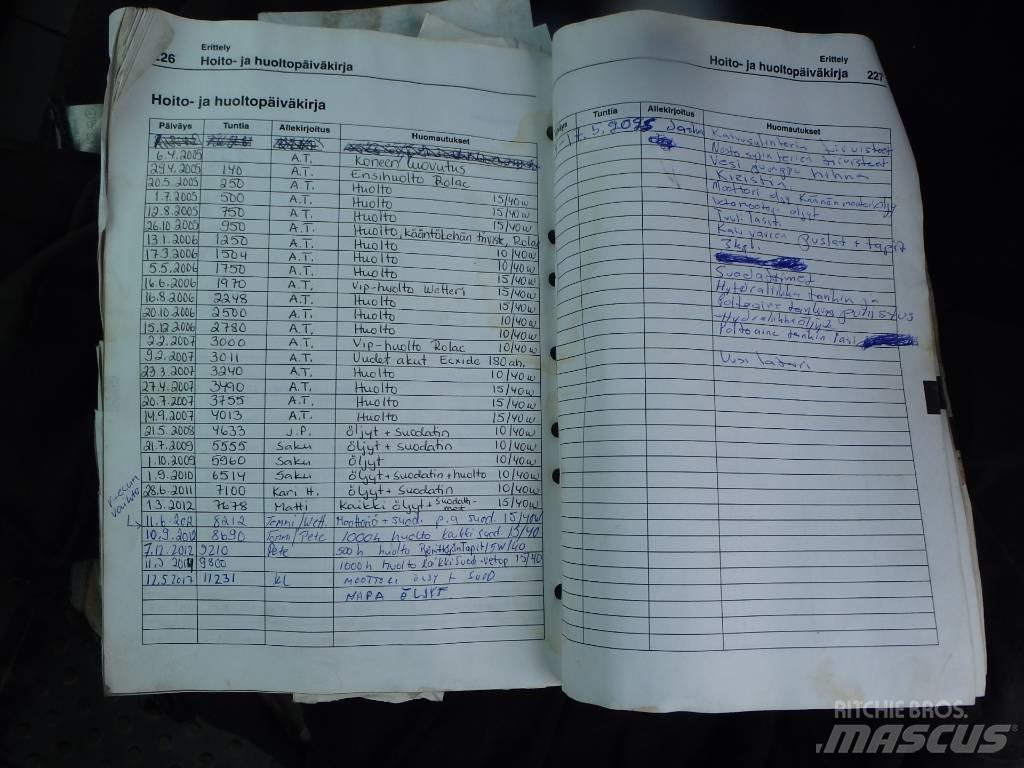 26
Erittely
Hoito- ja huoltopäiväkirja
Hoito- ja huoltopäiväkirja
Päiväys Tuntia Allekirjoitus Huomautukset
6.4.2005 A.T. Koneen luovutus
29.4.2005 140 A.T. Ensihuolto Rolac
20.5.2005 250 A.T. Huolto
1.7.2005 500 A.T. Huolto 15/40w
12.8.2005 750 A.T. Huolto 15/40w
26.10.2005 950 A.T. Huolto, kääntökehän tiivist, Rolac 15/40w
13.1.2006 1250 A.T. Huolto
17.3.2006 1504 A.T. Huolto 10/40w
5.5.2006 1750 A.T. Huolto 10/40w
16.6.2006 1970 A.T. Vip-huolto Wetteri 15/40w
16.8.2006 2248 A.T. Huolto 15/40w
20.10.2006 2500 A.T. Huolto 15/40w
15.12.2006 2780 A.T. Huolto 10/40w
2.2.2007 3000 A.T. Vip-huolto Rolac 10/40w
9.2.2007 3011 A.T. Uudet akut Ecxide 180 ah.
23.3.2007 3240 A.T. Huolto 10/40w
27.4.2007 3490 A.T. Huolto 15/40w
20.7.2007 3755 A.T. Huolto 15/40w
14.9.2007 4013 A.T. Huolto 15/40w
21.5.2008 4633 J.P. öljyt + suodatin 10/40w
21.7.2009 5555 Saku öljyt + suodatin 10/40w
1.10.2009 5960 Saku öljyt 10/40w
1.9.2010 6514 Saku öljyt + suodatin + huolto 10/40w
28.6.2011 7100 Kari H. öljyt + Suodatin 10/40w
1.3.2012 7678 Matti Kaikki öljyt + 15/40w
8212 Tommi/Wett. + suod. p.a suod. 15/40w
10.9.2012 8690 Tommi/Pete 1000h huolto kaikki suod. 15/40
7.12.2012 9210 Pete 500 h huolto 15W/40
9800 1000h huolto 15/40
11231 MOOTTORI ÖLJY + SUOD
NAPA ÖLJYT
Erittely
Hoito- ja huoltopäiväkirja 227
Tuntia Allekirjoitus Huomautukset
Vesi hihna
Kiristin
Moottori
öljyt
Tuuli lasit
+ tapit
3kpl.
Suodattimet
Hydraliikka tankin ja
Polttoaine tankin lasi
Uusi laturi
RITCHIE BROS.
MASCUS